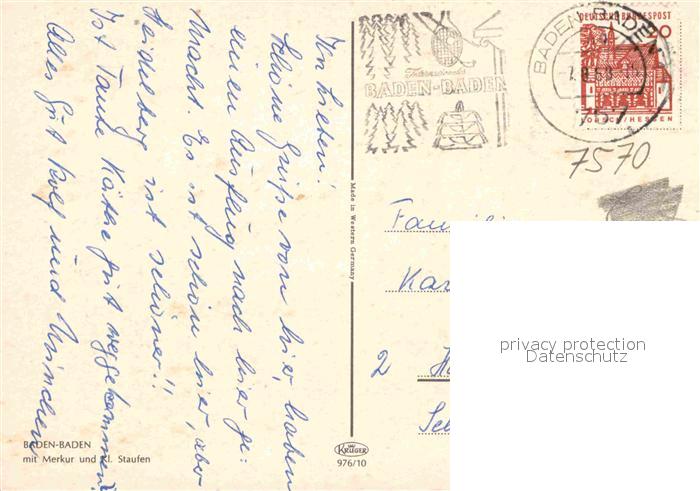 Ihr Lieben!
Schöne Grüße von hier, haben
einen Ausflug nach hier ge-
macht. Es ist schön hier, aber
Heidelberg ist schöner!!
Ist Tante Käthe gut weggekommen?
Alles Gute
und
BADEN-BADEN
mit Merkur und Kl. Staufen
Made in Western Germany
KRÜGER
976/10
BADEN-BADEN
BADEN-BADEN
DEUTSCHE BUNDESPOST
LORSCH/HESSEN
7570
Famili
Kar
2
privacy protection
Datenschutz